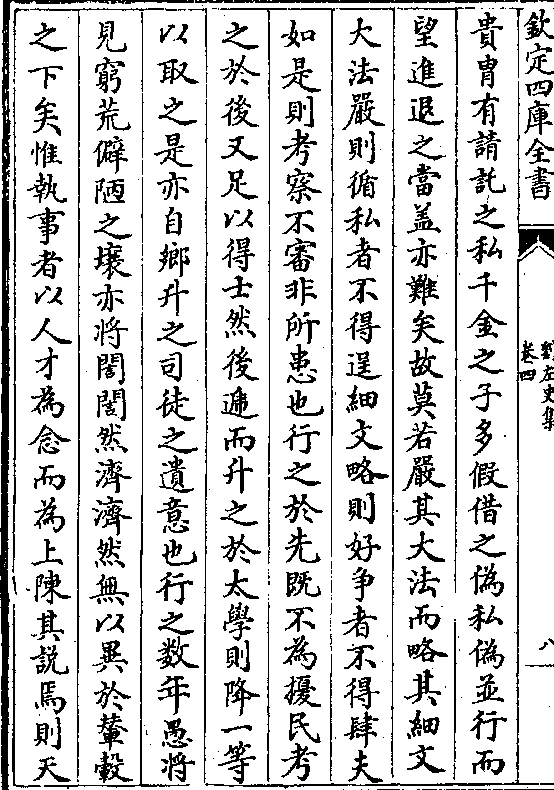 欽定四庫全書
劉左史集
卷四
八
貴胄有請託之私千金之子多假借之偽私偽並行而
望進退之當盖亦難矣故莫若嚴其大法而略其細文
大法嚴則循私者不得逞細文略則好爭者不得肆夫
如是則考察不審非所患也行之於先既不為擾民考
之於後又足以得士然後逓而升之於太學則降一等
以取之是亦自鄉升之司徒之遺意也行之数年愚将
見窮荒僻陋之壤亦将誾誾然濟濟然無以異於輦轂
之下矣惟執事者以人才為念而為上陳其説焉則天